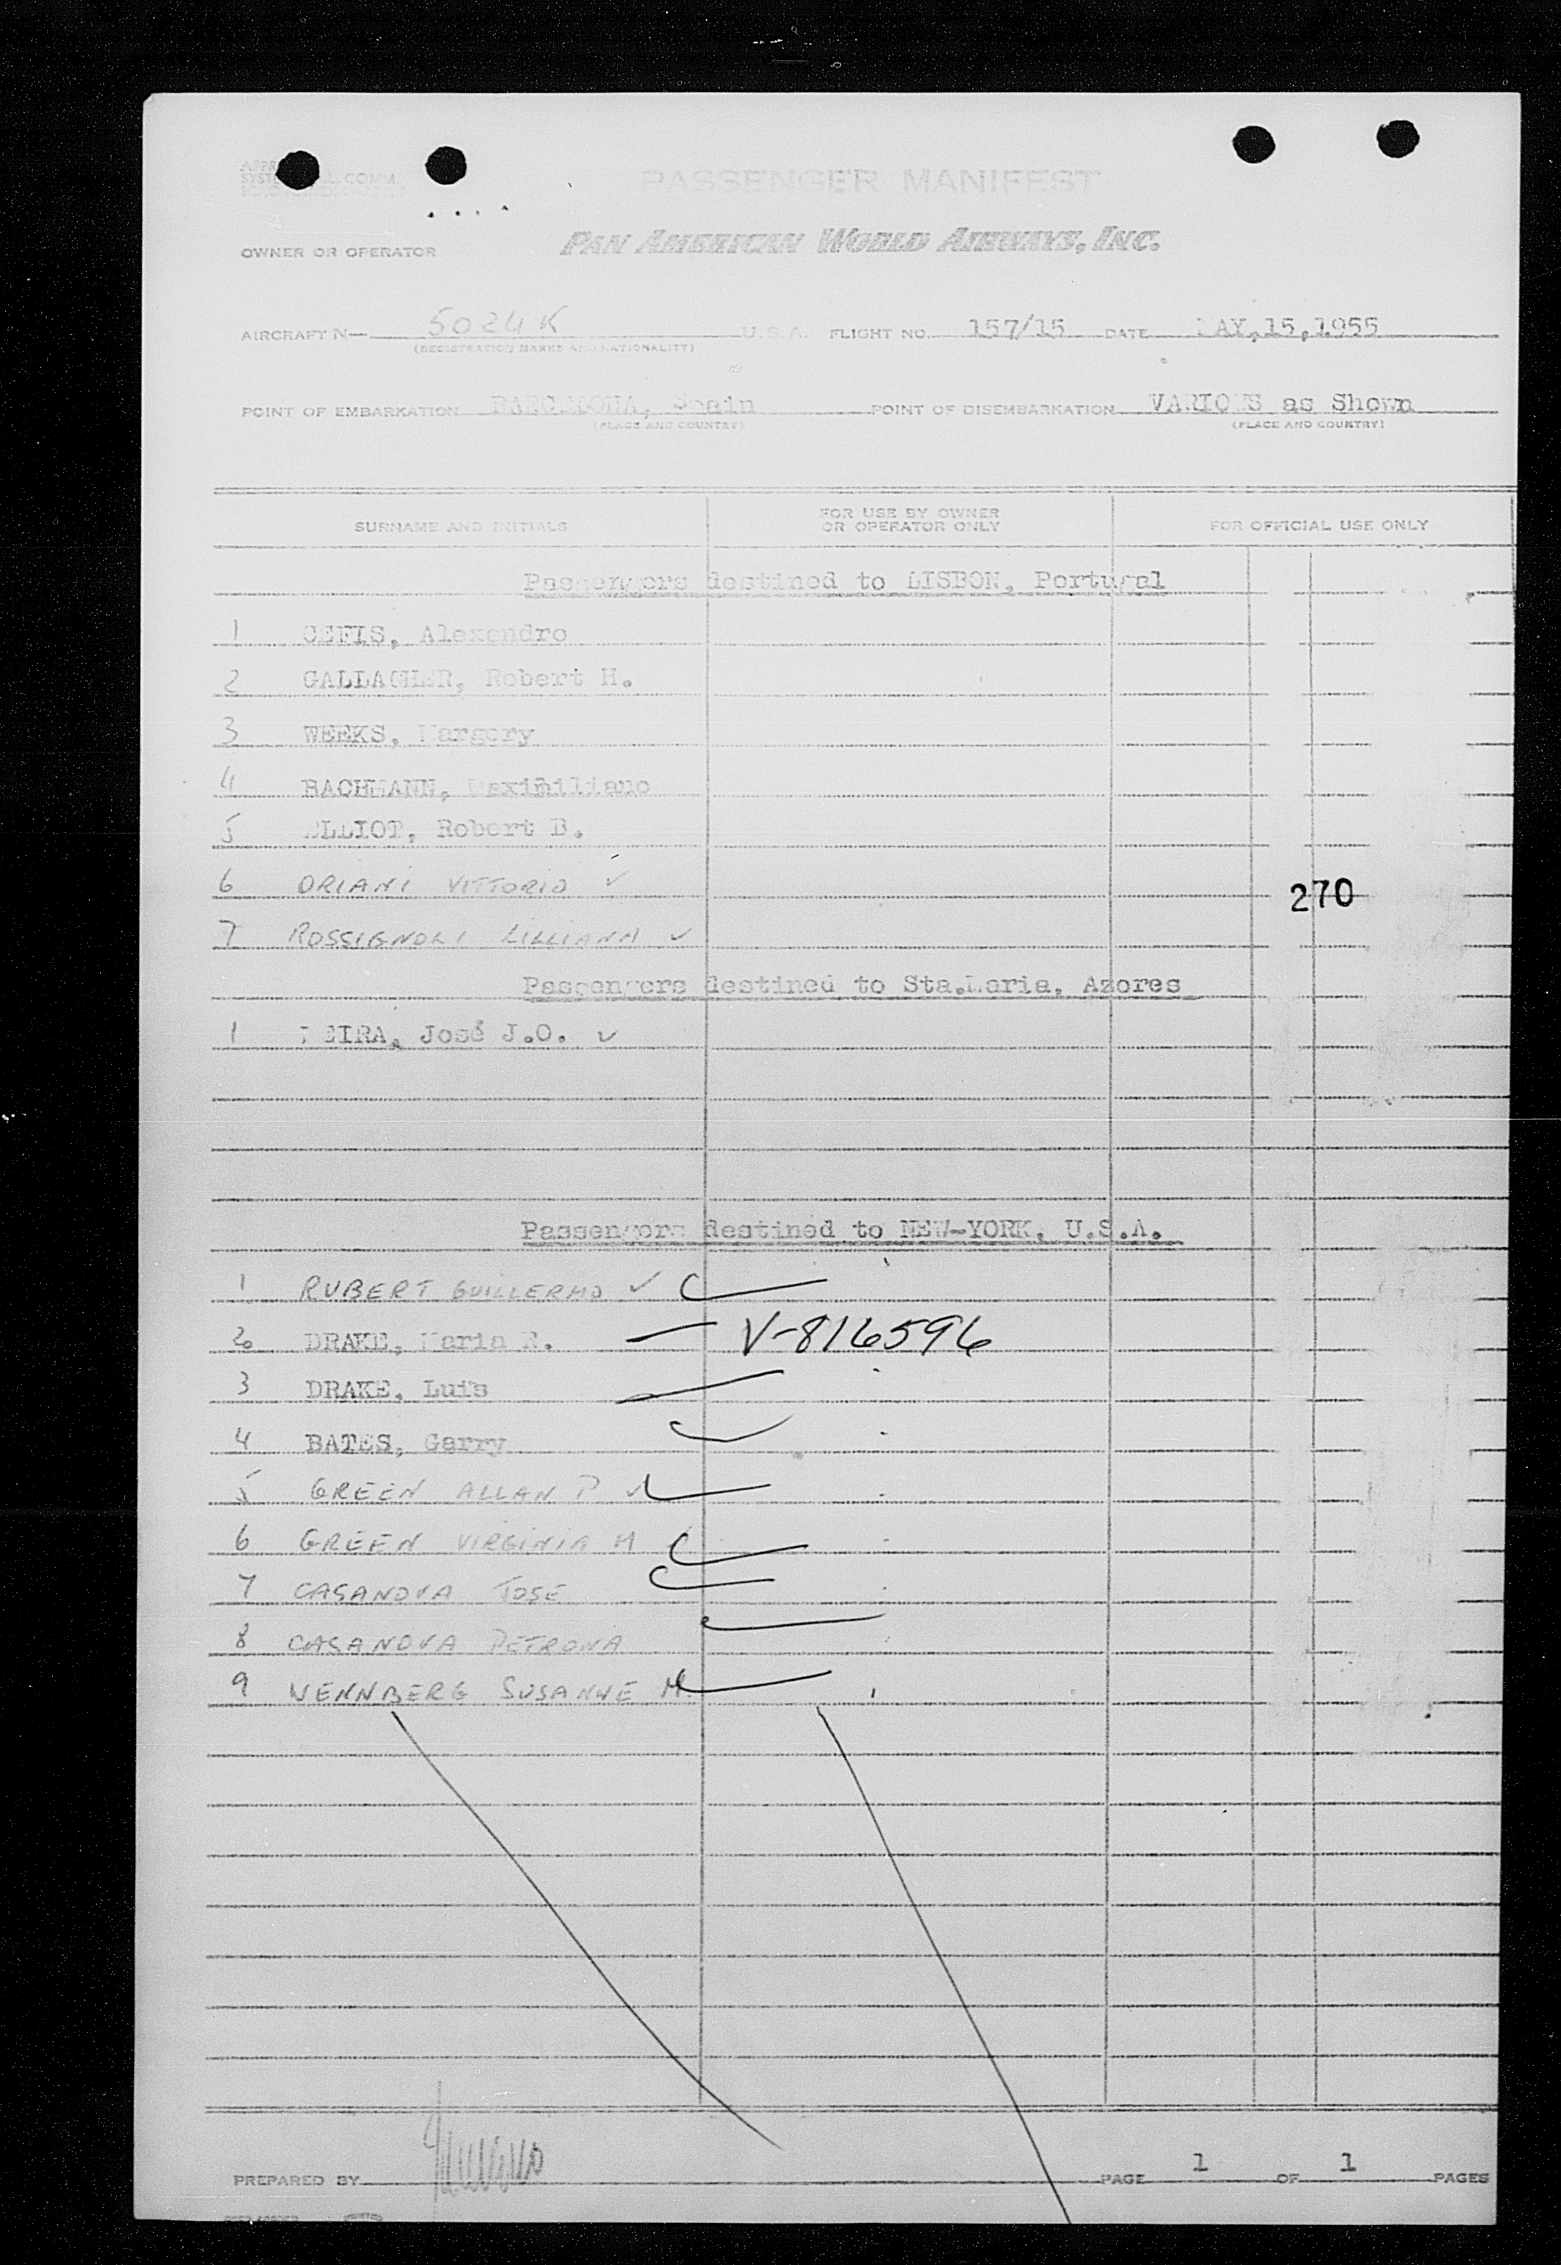 PASSENGER MANIFEST
OWNER OR OPERATOR PAN AMERICAN WORLD AIRWAYS, INC.
AIRCRAFT N— 5024K U.S.A. FLIGHT NO. 157/15 DATE MAY,15,1955
(REGISTRATION MARKS AND NATIONALITY)
POINT OF EMBARKATION BARCELONA, Spain POINT OF DISEMBARKATION VARIOUS as Shown
(PLACE AND COUNTRY) (PLACE AND COUNTRY)
SURNAME AND INITIALS FOR USE BY OWNER OR OPERATOR ONLY FOR OFFICIAL USE ONLY
Passengers destined to LISBON, Portugal
1 CEFIS, Alexandro
2 GALLAGHER, Robert H.
3 WEEKS, Margery
4 BACHMANN, Maximiliano
5 ELLIOT, Robert B.
6 ORIANI VITTORIO ✓
270
7 ROSSIGNOLI LILLIANA ✓
Passengers destined to Sta.Maria, Azores
1 José J.O. ✓
Passengers destined to NEW-YORK, U.S.A.
1 RUBERT GUILLERMO ✓
2 DRAKE, Maria E. V-816596
3 DRAKE, Luis
4 BATES, Garry
5 GREEN ALLAN P ✓
6 GREEN VIRGINIA M
7 CASANOVA JOSE
8 CASANOVA PETRONA
9 WENNBERG SUSANNE M.
PREPARED BY PAGE 1 OF 1 PAGES